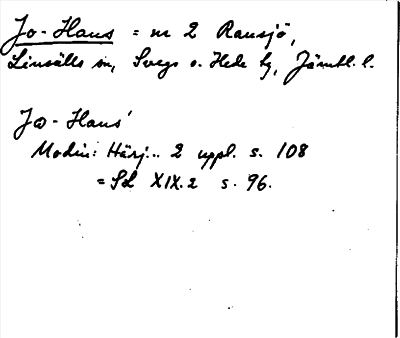 Jo-Hans = nr 2 Ransjö,
Linsälls sn, Svegs o. Hede tg, Jämtl. l.
Jo-Hans'
Modin: Härj... 2 uppl. s. 108
= SL XIX.2 s. 96.